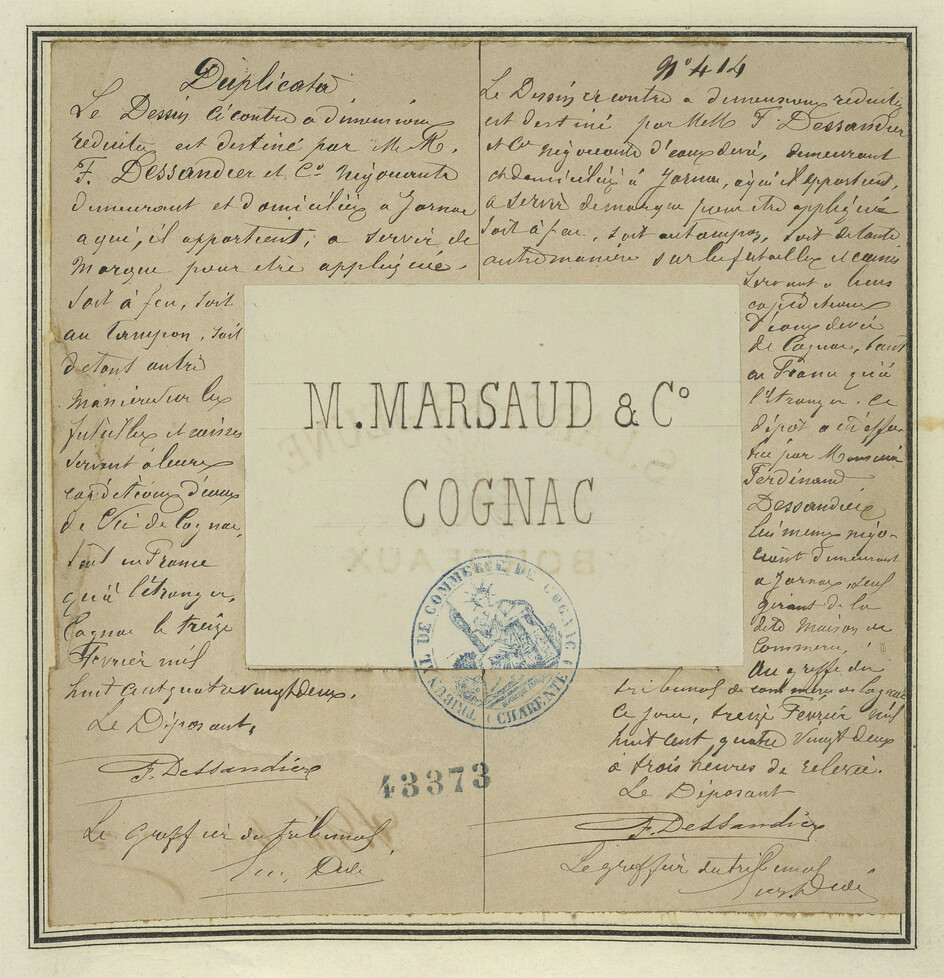 Duplicata
Le Dessin ci contre a dimensions
reduites est destiné par M.M.
F. Dessandier et Co Négociants
demeurant et domiciliés a Jarnac
a qui, il appartient, a servir de
Marque pour etre appliquée.
soit à feu, soit
au tampon, soit
de tout autre
Manière sur les
futailles et caisses
servant à leurs
expéditions d'eaux
de Vie de Cognac,
tant en France
qu'à l'étranger.
Cognac le treize
Fevrier mil
huit cent quatre vingt deux.
Le Déposant,
F. Dessandier
Le greffier du tribunal
No 414
Le Dessin ci contre a dimensions reduites
est destiné par MM F. Dessandier
et Co négociants d'eaux de vie, demeurant
et domiciliés à Jarnac, à qui il appartient,
a servir de marque pour etre appliquée
soit à feu, soit au tampon, soit de toute
autre manière sur les futailles et caisses
servant a leurs
expéditions
d'eaux de vie
de Cognac, tant
en France qu'à
l'étranger. Ce
dépôt a été effec-
tué par Monsieur
Ferdinand
Dessandier
lui meme négo-
ciant demeurant
a Jarnac, seul
gérant de la
dite Maison de
Commerce,
Au greffe du
tribunal de commerce de Cognac
Ce jour, treize Février mil
huit cent quatre vingt deux
à trois heures de relevée.
Le Déposant
F. Dessandier
Le greffier du tribunal
M. MARSAUD & Co
COGNAC
TRIBUNAL DE COMMERCE DE COGNAC
(CHARENTE)
43373